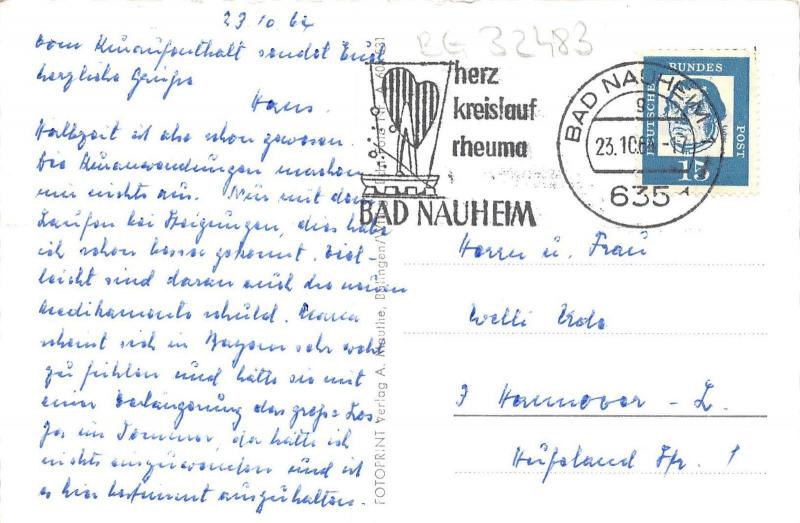 23.10.64
Vom Kuraufenthalt sendet Euch
herzliche Grüße
Hans.
Halbzeit ist also schon gewesen.
Die Kuranwendungen machen
mir nichts aus. Nur mit dem
Laufen bei Steigungen, dies habe
ich schon besser gekonnt. Viel-
leicht sind daran auch die neuen
Medikamente schuld.
scheint sich in Bayern sehr wohl
zu fühlen und hätte sie mit
einer Verlängerung das große Los.
Ja im Sommer, da hätte ich
nichts einzuwenden und ist
es hier bestimmt auszuhalten.
FOTOPRINT Verlag A. Mauthe, Balingen/
RG 32483
herz
kreislauf
rheuma
BAD NAUHEIM
BAD NAUHEIM 1
g
23.10.64-17
635
DEUTSCHE BUNDES POST
15
Herrn u. Frau
Welli
3 Hannover - L.
Hufeland Str. 1